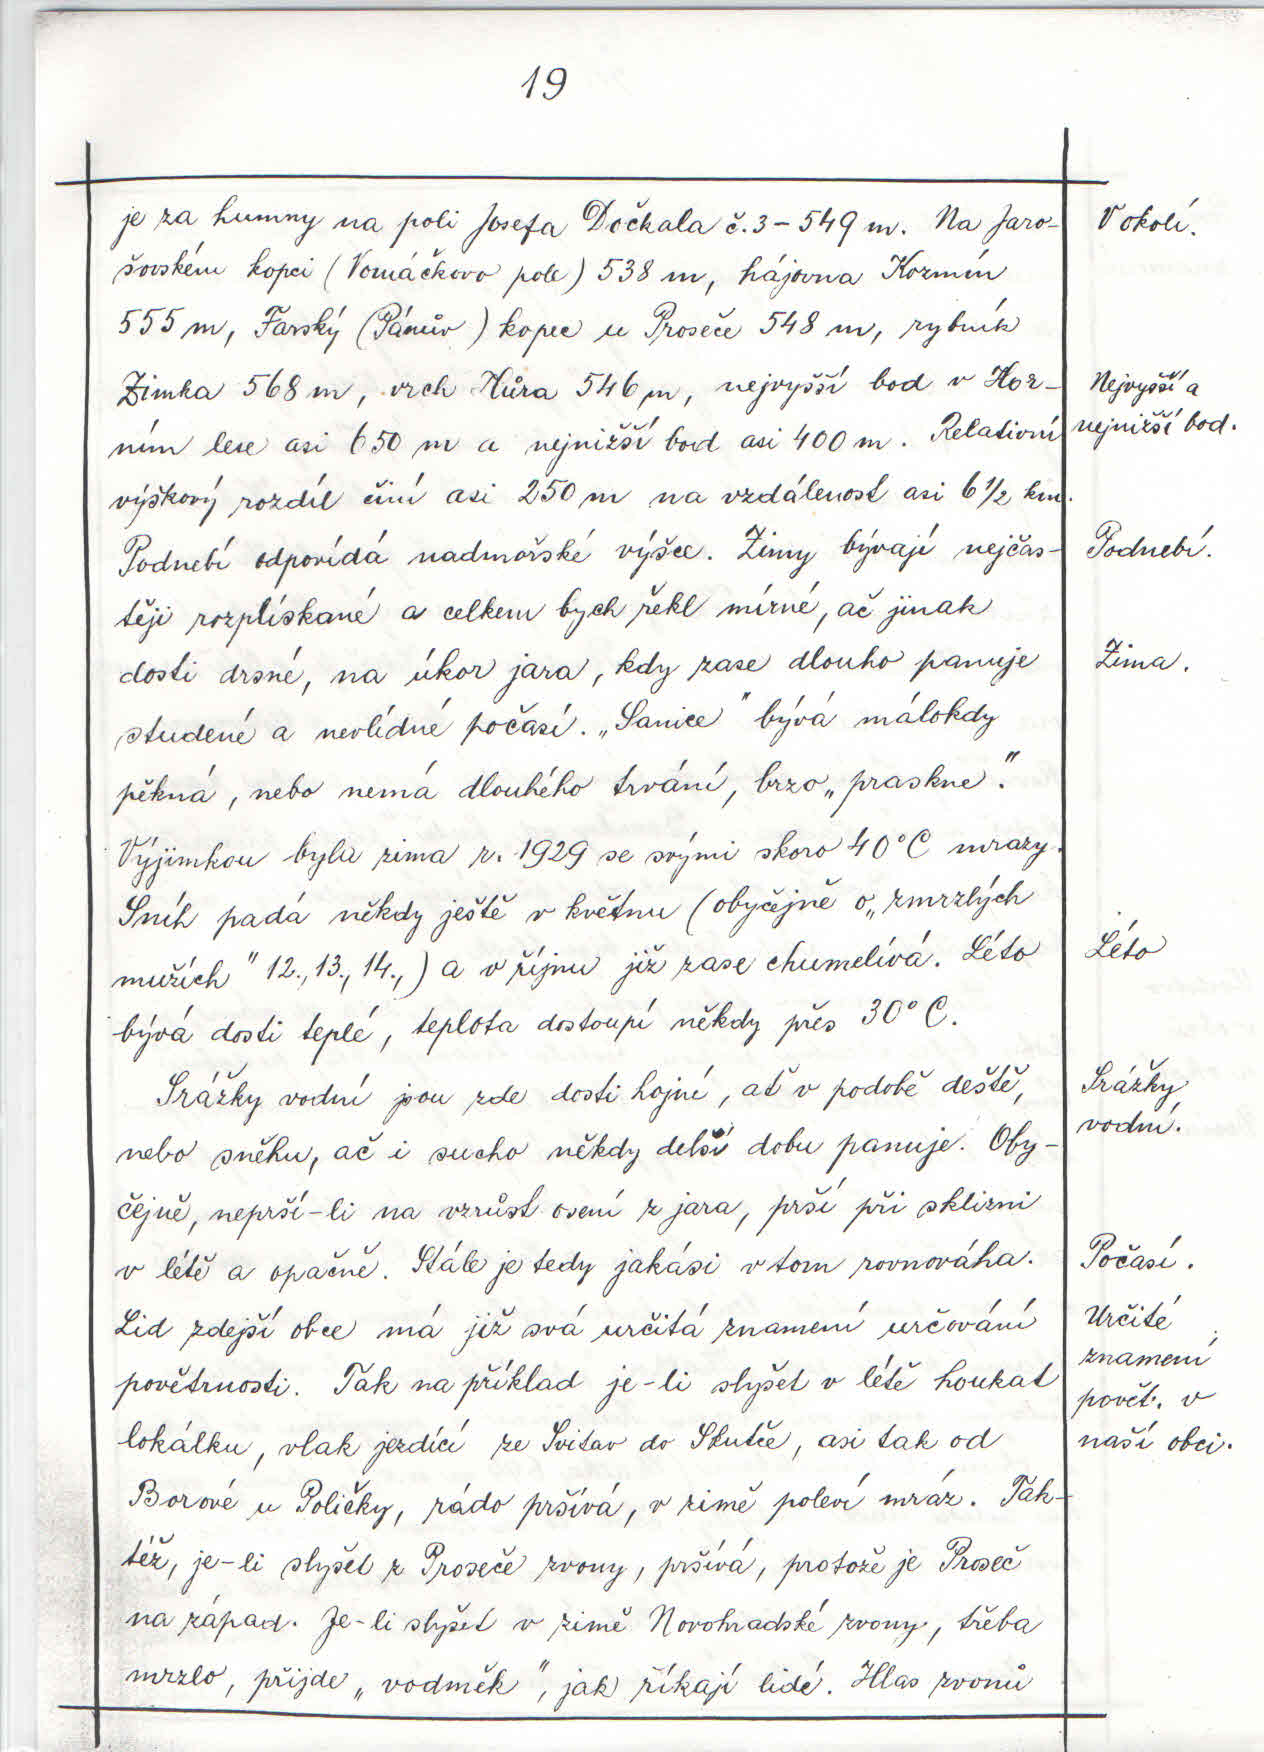 19
je za humny na poli Josefa Dočkala č. 3 – 549 m. Na Jaro-
šovském kopci (Vomáčkovo pole) 538 m, hájovna Kozmín
555 m, Farský (Pánův) kopec u Proseče 548 m, rybník
Zimka 568 m, vrch Hůra 546 m, nejvyšší bod v Hor-
ním lese asi 650 m a nejnižší bod asi 400 m. Relativní
výškový rozdíl činí asi 250 m na vzdálenost asi 6 1/2 km.
Podnebí odpovídá nadmořské výšce. Zimy bývají nejčas-
těji rozplískané a celkem bych řekl mírné, ač jinak
dosti drsné, na úkor jara, kdy zase dlouho panuje
studené a nevlídné počasí. „Sanice" bývá málokdy
pěkná, nebo nemá dlouhého trvání, brzo „praskne".
Výjimkou byla zima r. 1929 se svými skoro 40°C mrazy.
Sníh padá někdy ještě v květnu (obyčejně o „zmrzlých
mužích" 12., 13., 14.,) a v říjnu již zase chumelívá. Léto
bývá dosti teplé, teplota dostoupí někdy přes 30°C.
Srážky vodní jsou zde dosti hojné, ať v podobě deště,
nebo sněhu, ač i sucho někdy delší dobu panuje. Oby-
čejně, neprší-li na vzrůst osení z jara, prší při sklizni
v létě a opačně. Stále je tedy jakási v tom rovnováha.
Lid zdejší obce má již svá určitá znamení určování
povětrnosti. Tak na příklad je-li slyšet v létě houkat
lokálku, vlak jezdící ze Svitav do Skutče, asi tak od
Borové u Poličky, rádo pršívá, v zimě poleví mráz. Tak-
též, je-li slyšet z Proseče zvony, pršívá, protože je Proseč
na západ. Je-li slyšet v zimě Novohradské zvony, třeba
mrzlo, přijde „vodměk", jak říkají lidé. Hlas zvonů
V okolí.
Nejvyšší a
nejnižší bod.
Podnebí.
Zima.
Léto
Srážky
vodní.
Počasí.
Určité
znamení
povět. v
naší obci.